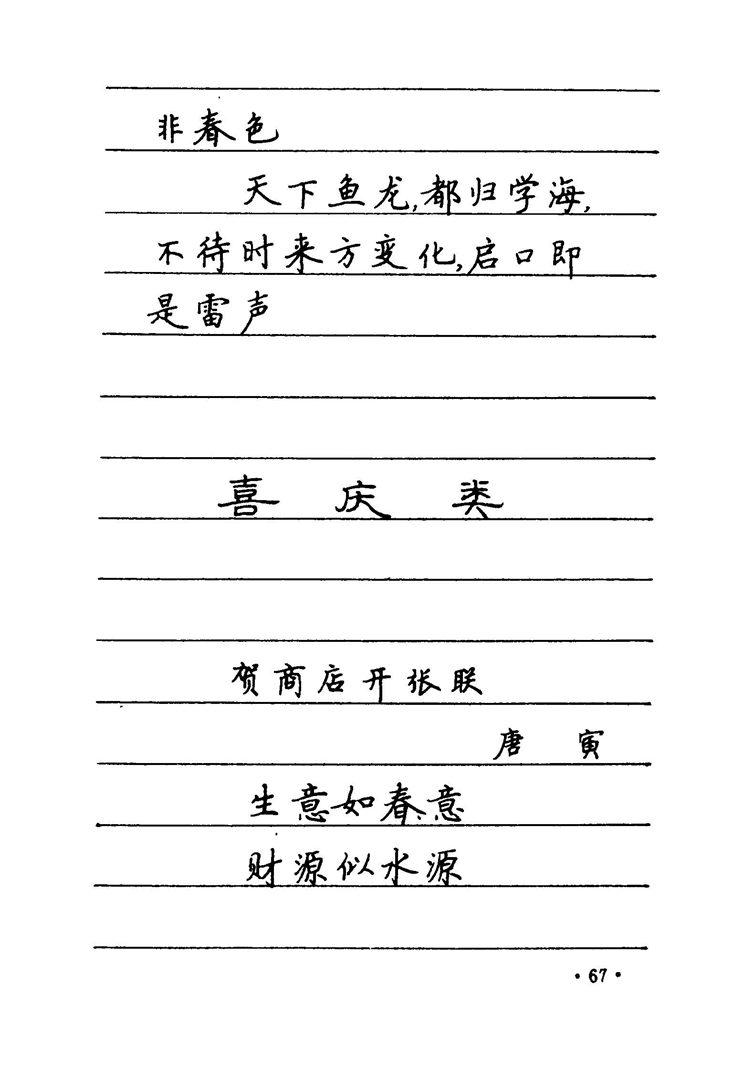 非春色
天下鱼龙,都归学海,
不待时来方变化,启口即
是雷声
喜 庆 类
贺商店开张联
唐 寅
生意如春意
财源似水源
·67·